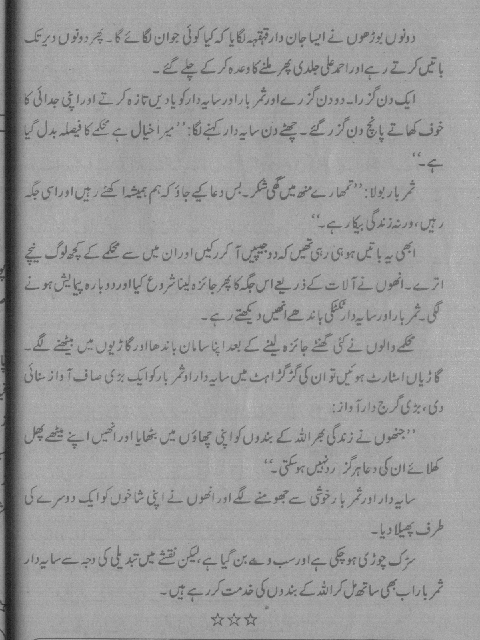 دونوں بوڑھوں نے ایسا جان دار قہقہہ لگایا کہ کیا کوئی جوان لگائے گا۔ پھر دونوں دیر تک
باتیں کرتے رہے اور احمد علی جلدی پھر ملنے کا وعدہ کر کے چلے گئے۔
ایک دن گزرا۔ دو دن گزرے اور ثمر بار اور سایہ دار کو یادیں تازہ کرتے اور اپنی جدائی کا
خوف کھاتے پانچ دن گزر گئے۔ چھٹے دن سایہ دار کہنے لگا: ’’میرا خیال ہے محکمے کا فیصلہ بدل گیا
ہے۔‘‘
ثمر بار بولا: ’’تمھارے منھ میں گھی شکر۔ بس دعا کیے جاؤ کہ ہم ہمیشہ اکھٹے رہیں اور اسی جگہ
رہیں، ورنہ زندگی بیکار ہے۔‘‘
ابھی یہ باتیں ہو ہی رہی تھیں کہ دو جیپیں آ کر رکیں اور ان میں سے محکمے کے کچھ لوگ نیچے
اترے۔ انھوں نے آلات کے ذریعے اس جگہ کا پھر جائزہ لینا شروع کیا اور دوبارہ پیمایش ہونے
لگی۔ ثمر بار اور سایہ دار ٹکٹکی باندھے انھیں دیکھتے رہے۔
محکمے والوں نے کئی گھنٹے جائزہ لینے کے بعد اپنا سامان باندھا اور گاڑیوں میں بیٹھنے لگے۔
گاڑیاں اسٹارٹ ہوئیں تو ان کی گڑگڑاہٹ میں سایہ دار اور ثمر بار کو ایک بڑی صاف آواز سنائی
دی، بڑی گرج دار آواز:
’’جنھوں نے زندگی بھر اللہ کے بندوں کو اپنی چھاؤں میں بٹھایا اور انھیں اپنے میٹھے پھل
کھلائے ان کی دعا ہرگز رد نہیں ہو سکتی۔‘‘
سایہ دار اور ثمر بار خوشی سے جھومنے لگے اور انھوں نے اپنی شاخوں کو ایک دوسرے کی
طرف پھیلا دیا۔
سڑک چوڑی ہو چکی ہے اور سب وے بن گیا ہے، لیکن نقشے میں تبدیلی کی وجہ سے سایہ دار
ثمر بار اب بھی ساتھ مل کر اللہ کے بندوں کی خدمت کر رہے ہیں۔
☆☆☆